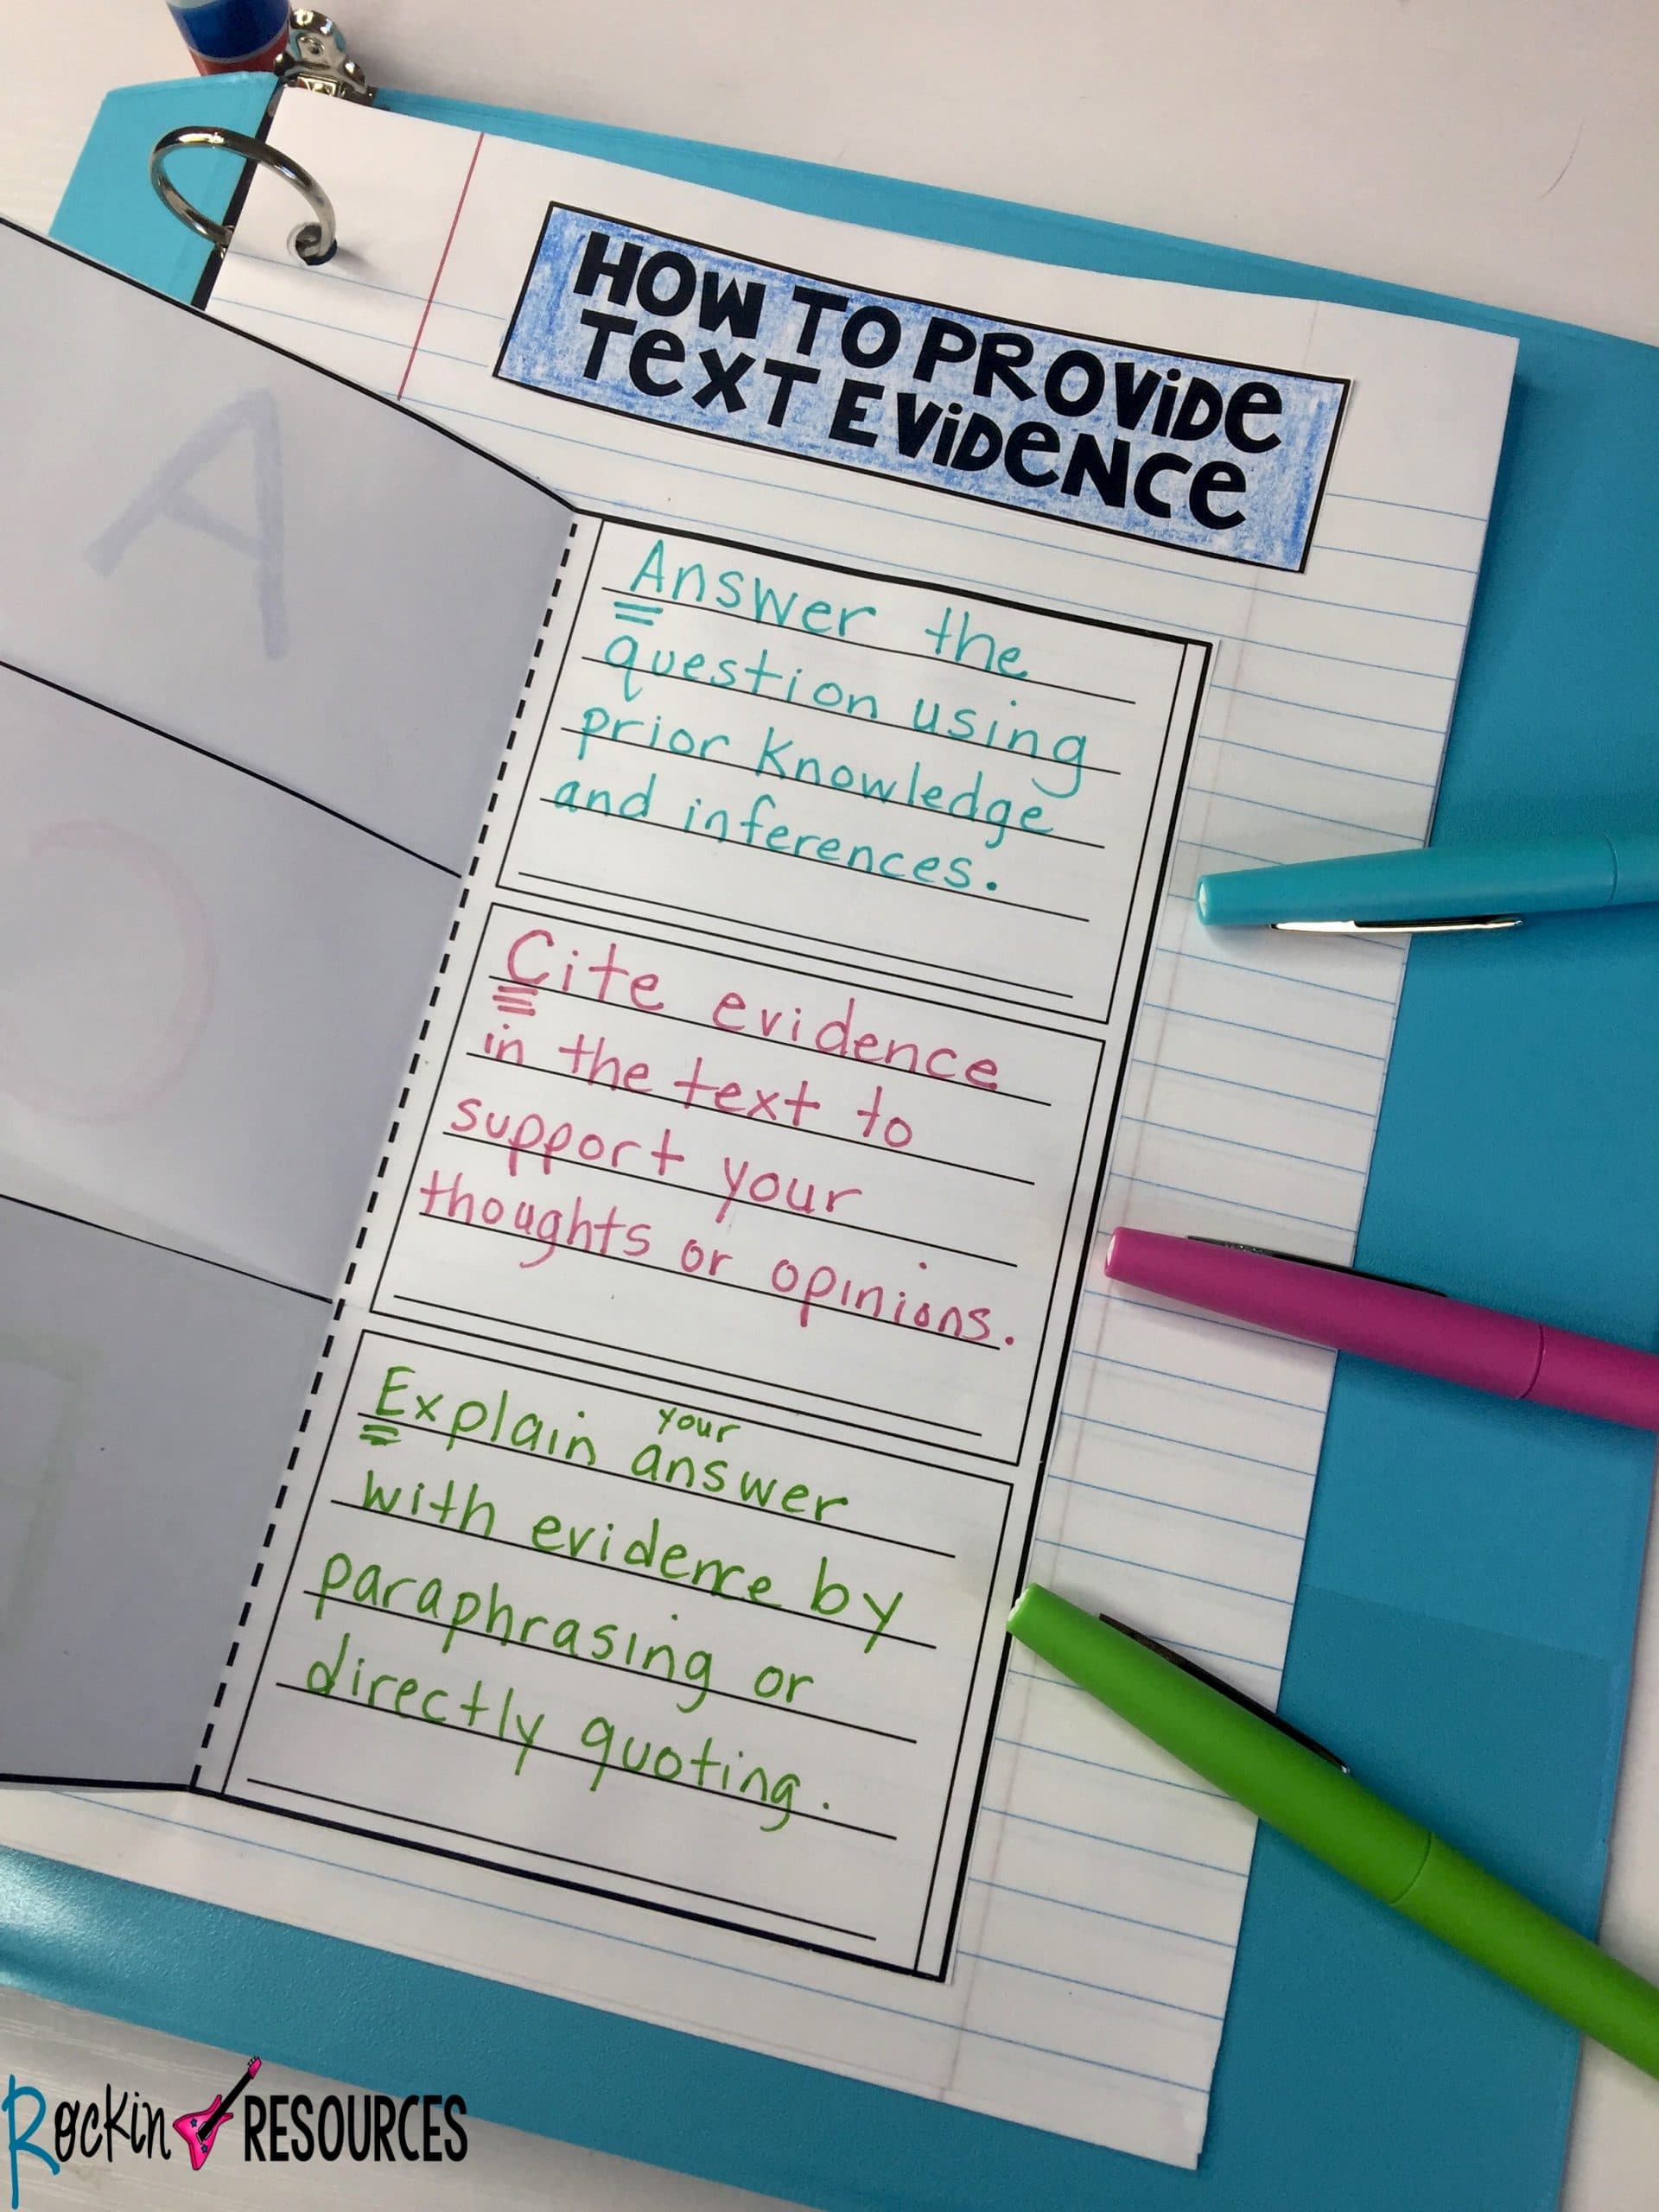 HOW TO PROViDe
TexT EViDeNce
A
Answer the
question using
prior knowledge
and inferences.
Cite evidence
in the text to
support your
thoughts or opinions.
your
Explain answer
with evidence by
paraphrasing or
directly quoting.
Rockin RESOURCES